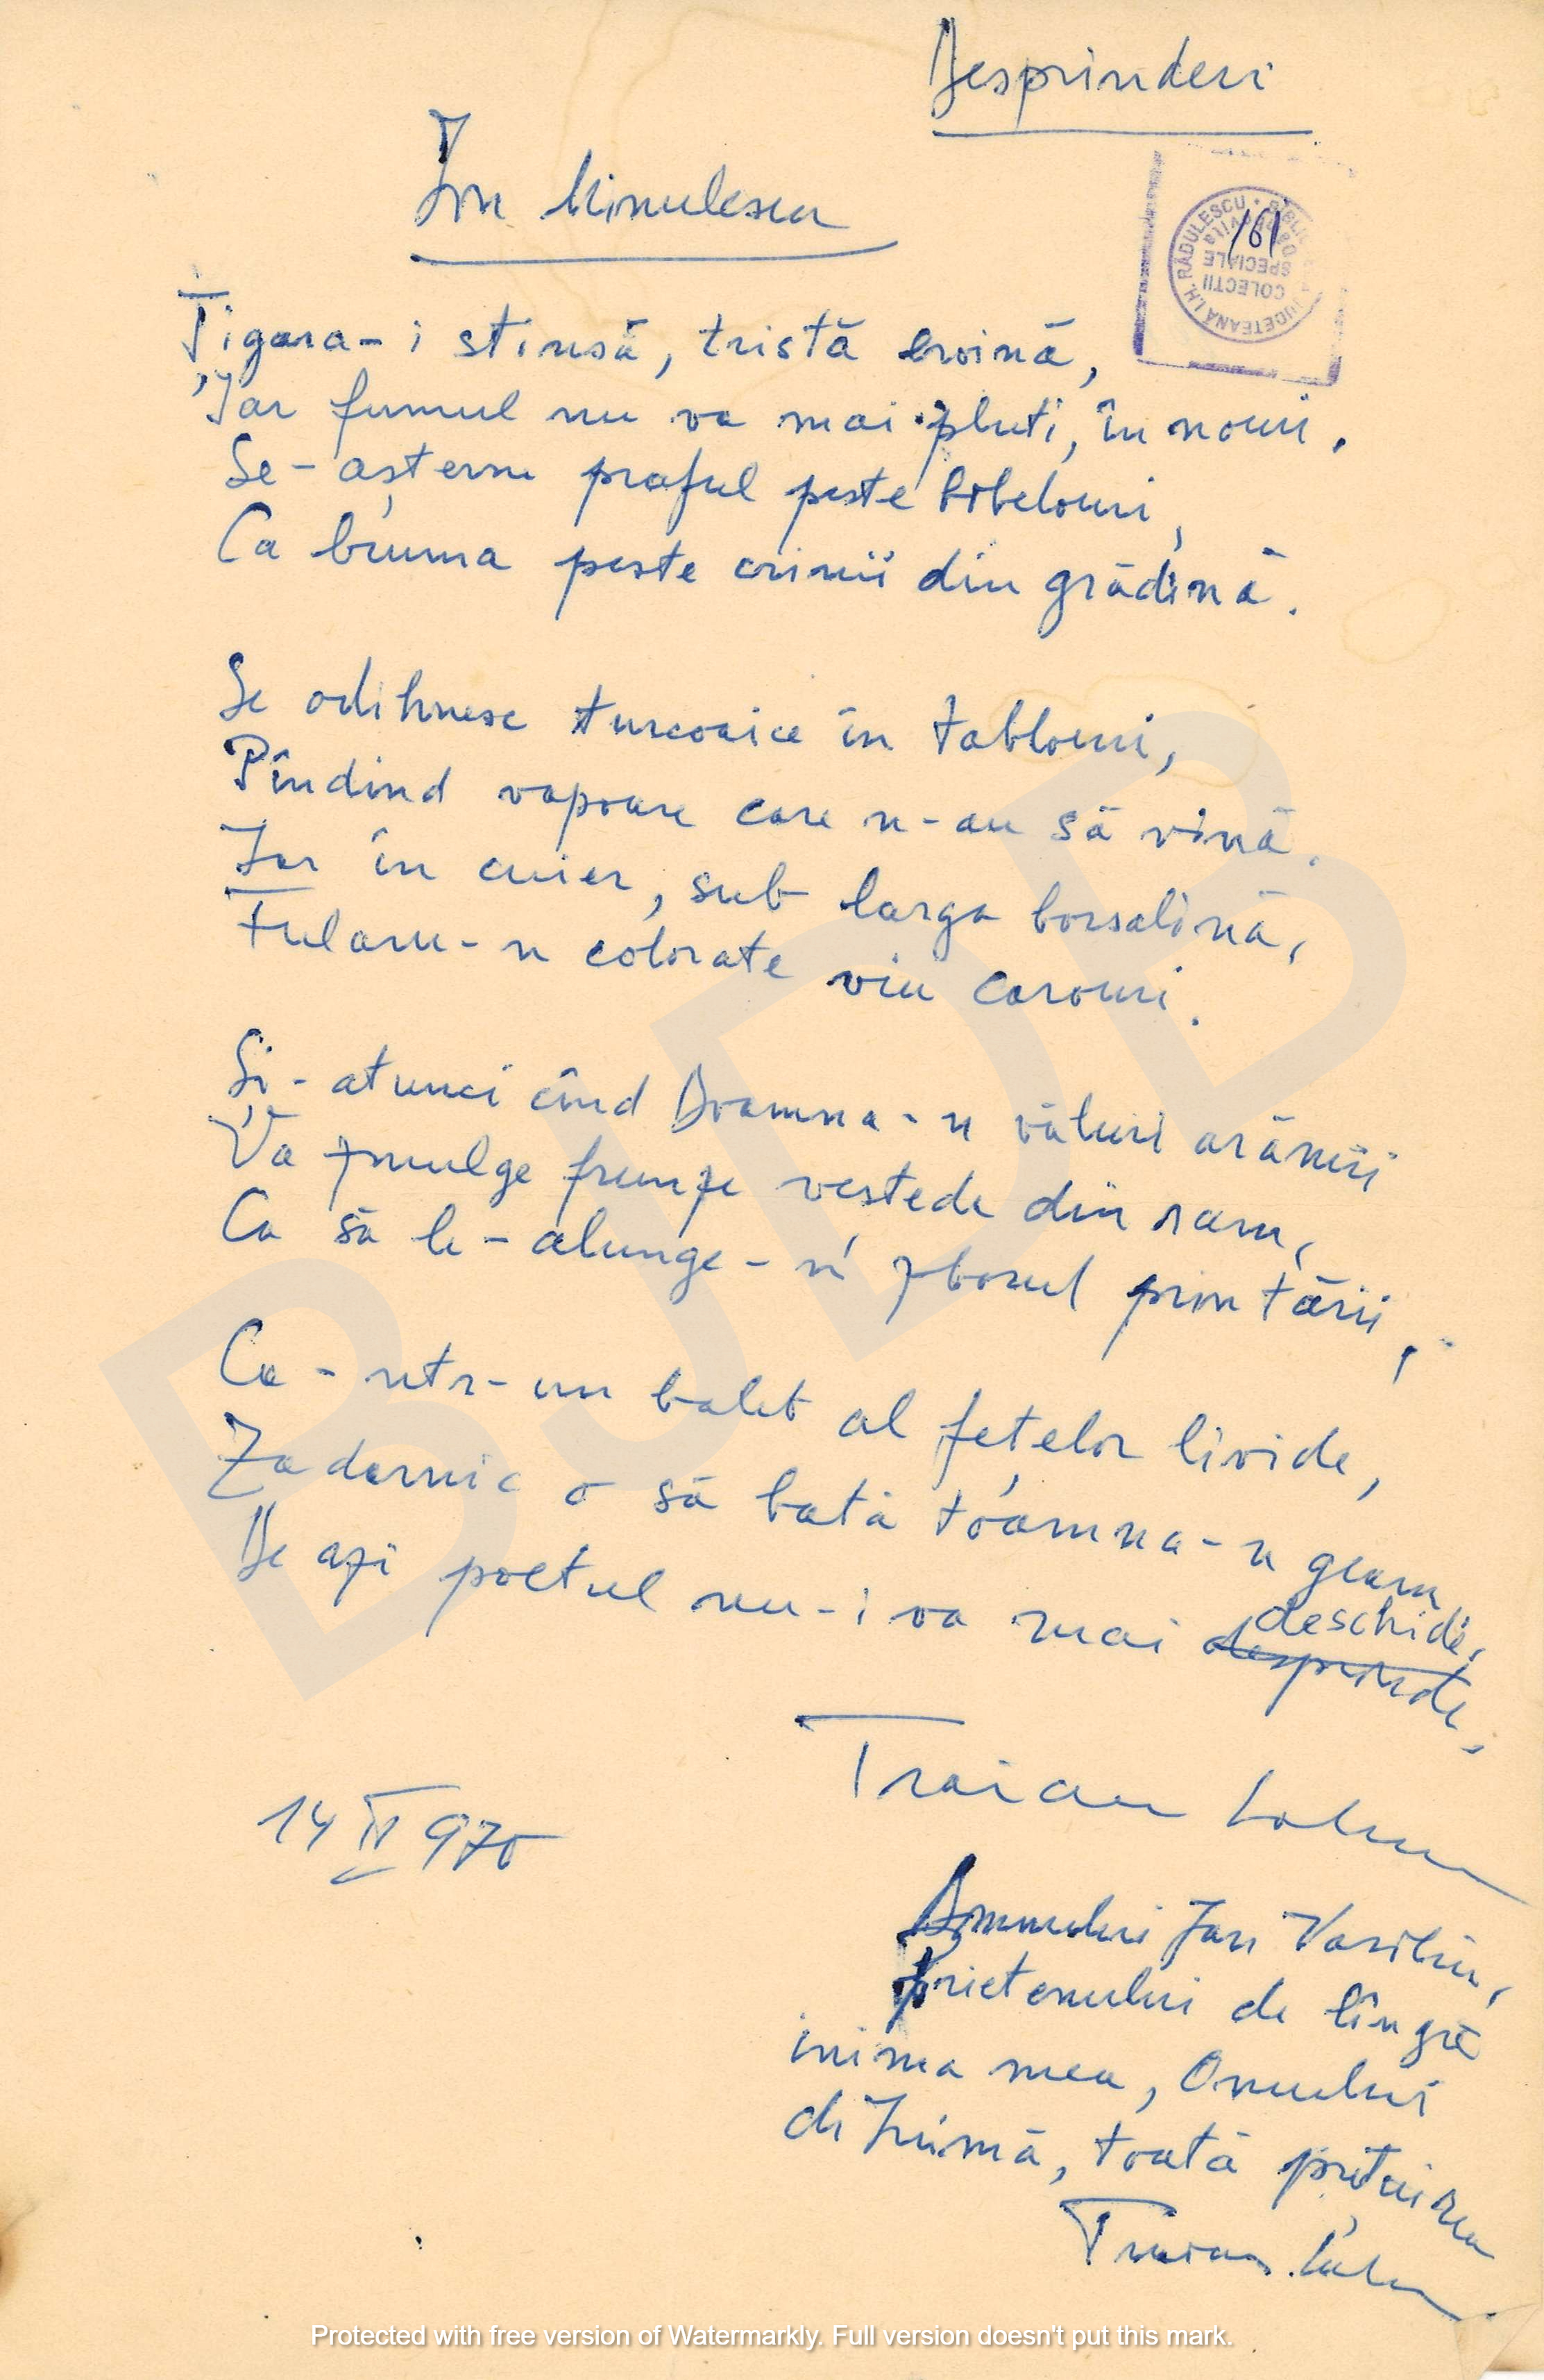 Desprinderi
Ion Minulescu
161
BIBLIOTECA JUDEȚEANĂ I.H. RĂDULESCU
COLECTII
SPECIALE
Țigara-i stinsă, tristă eroină,
Iar fumul nu va mai pluti, în nouri.
Se-așterne praful peste bibelouri,
Ca bruma peste crinii din grădină.
Se odihnesc turcoaice în tablouri,
Pîndind vapoare care n-au să vină.
Iar în cuier, sub larga borsalină,
Fularu-n colorate viu carouri.
Și-atunci cînd Doamna-n văluri arămii
Va smulge frunze vestede din ram,
Ca să le-alunge-n zborul prin tării,
Ca-ntr-un balet al fețelor livide,
Zadarnic o să bată toamna-n geam
De azi poetul nu-i va mai desprinde,
deschide.
Traian
14 II 970
Domnului Jan Vasiliu,
prietenului de lîngă
inima mea, Omului
de Inimă, toată prețuirea
Traian
BJDB
Protected with free version of Watermarkly. Full version doesn't put this mark.